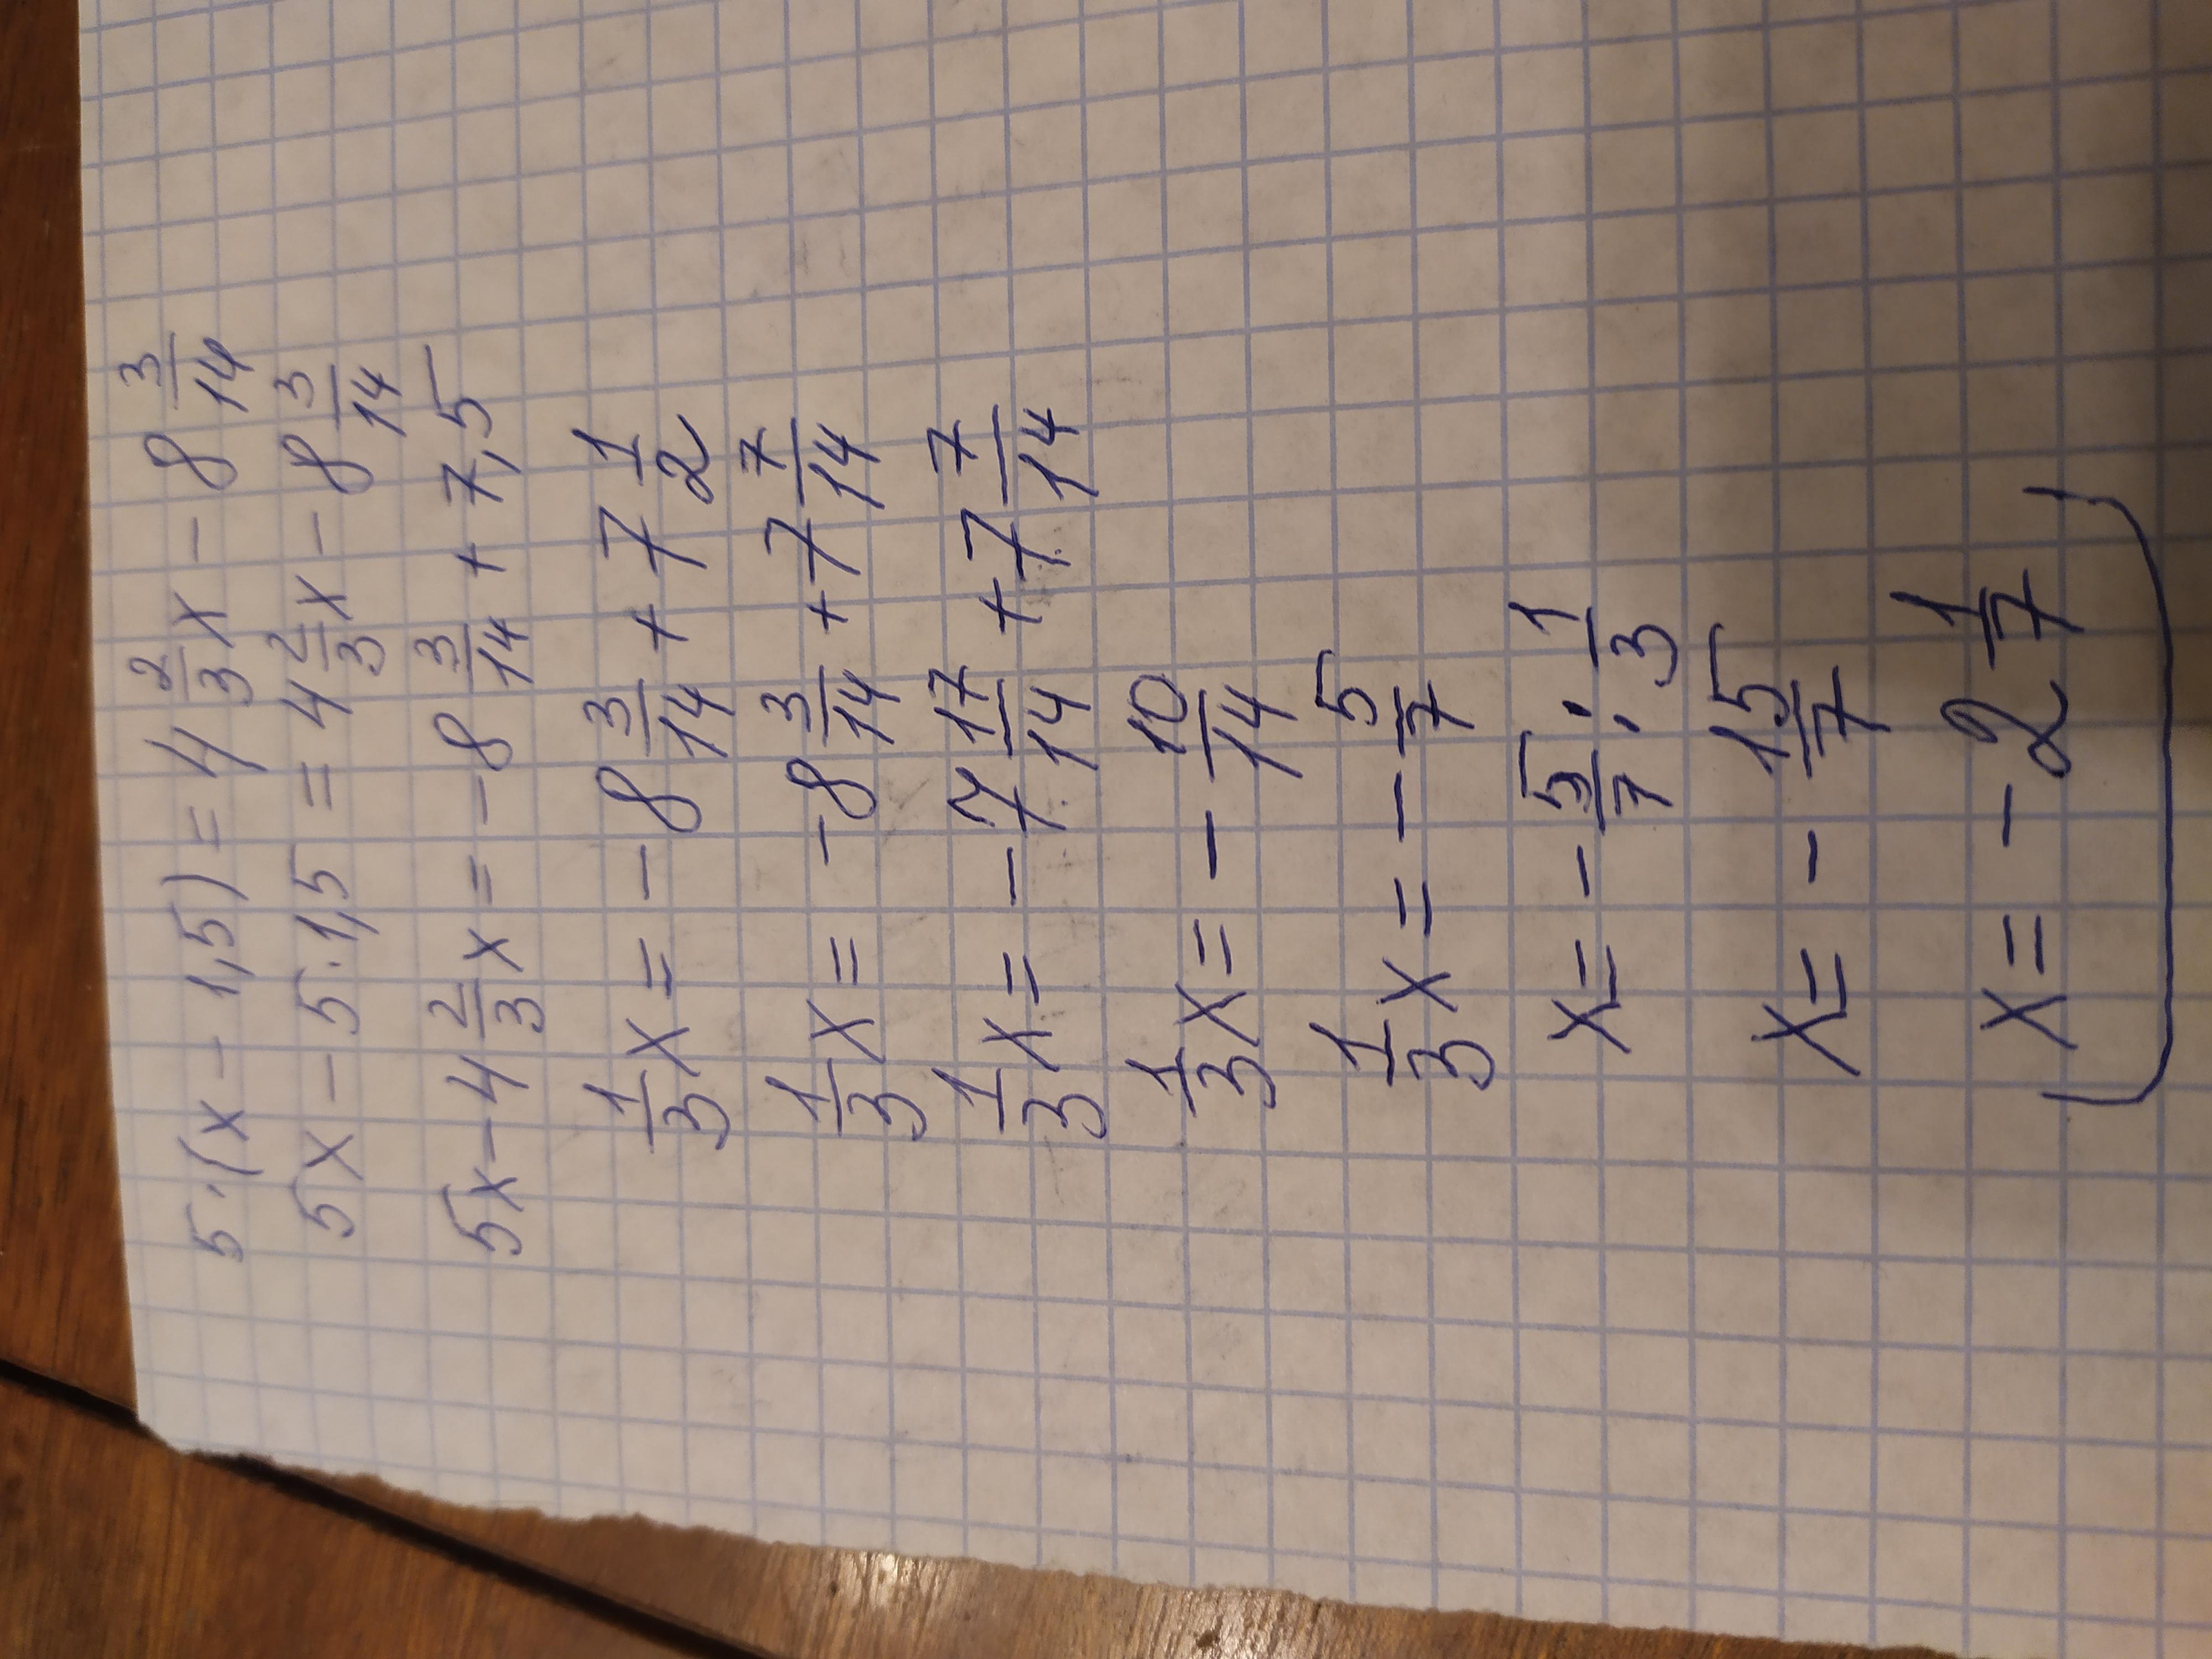 5·(x − 1,5) = 4 2/3 x − 8 3/14
5x − 5·1,5 = 4 2/3 x − 8 3/14
5x − 4 2/3 x = −8 3/14 + 7,5
1/3 x = −8 3/14 + 7 1/2
1/3 x = −8 3/14 + 7 7/14
1/3 x = −7 17/14 + 7 7/14
1/3 x = − 10/14
1/3 x = − 5/7
x = − 5/7 : 1/3
x = − 15/7
x = − 2 1/7